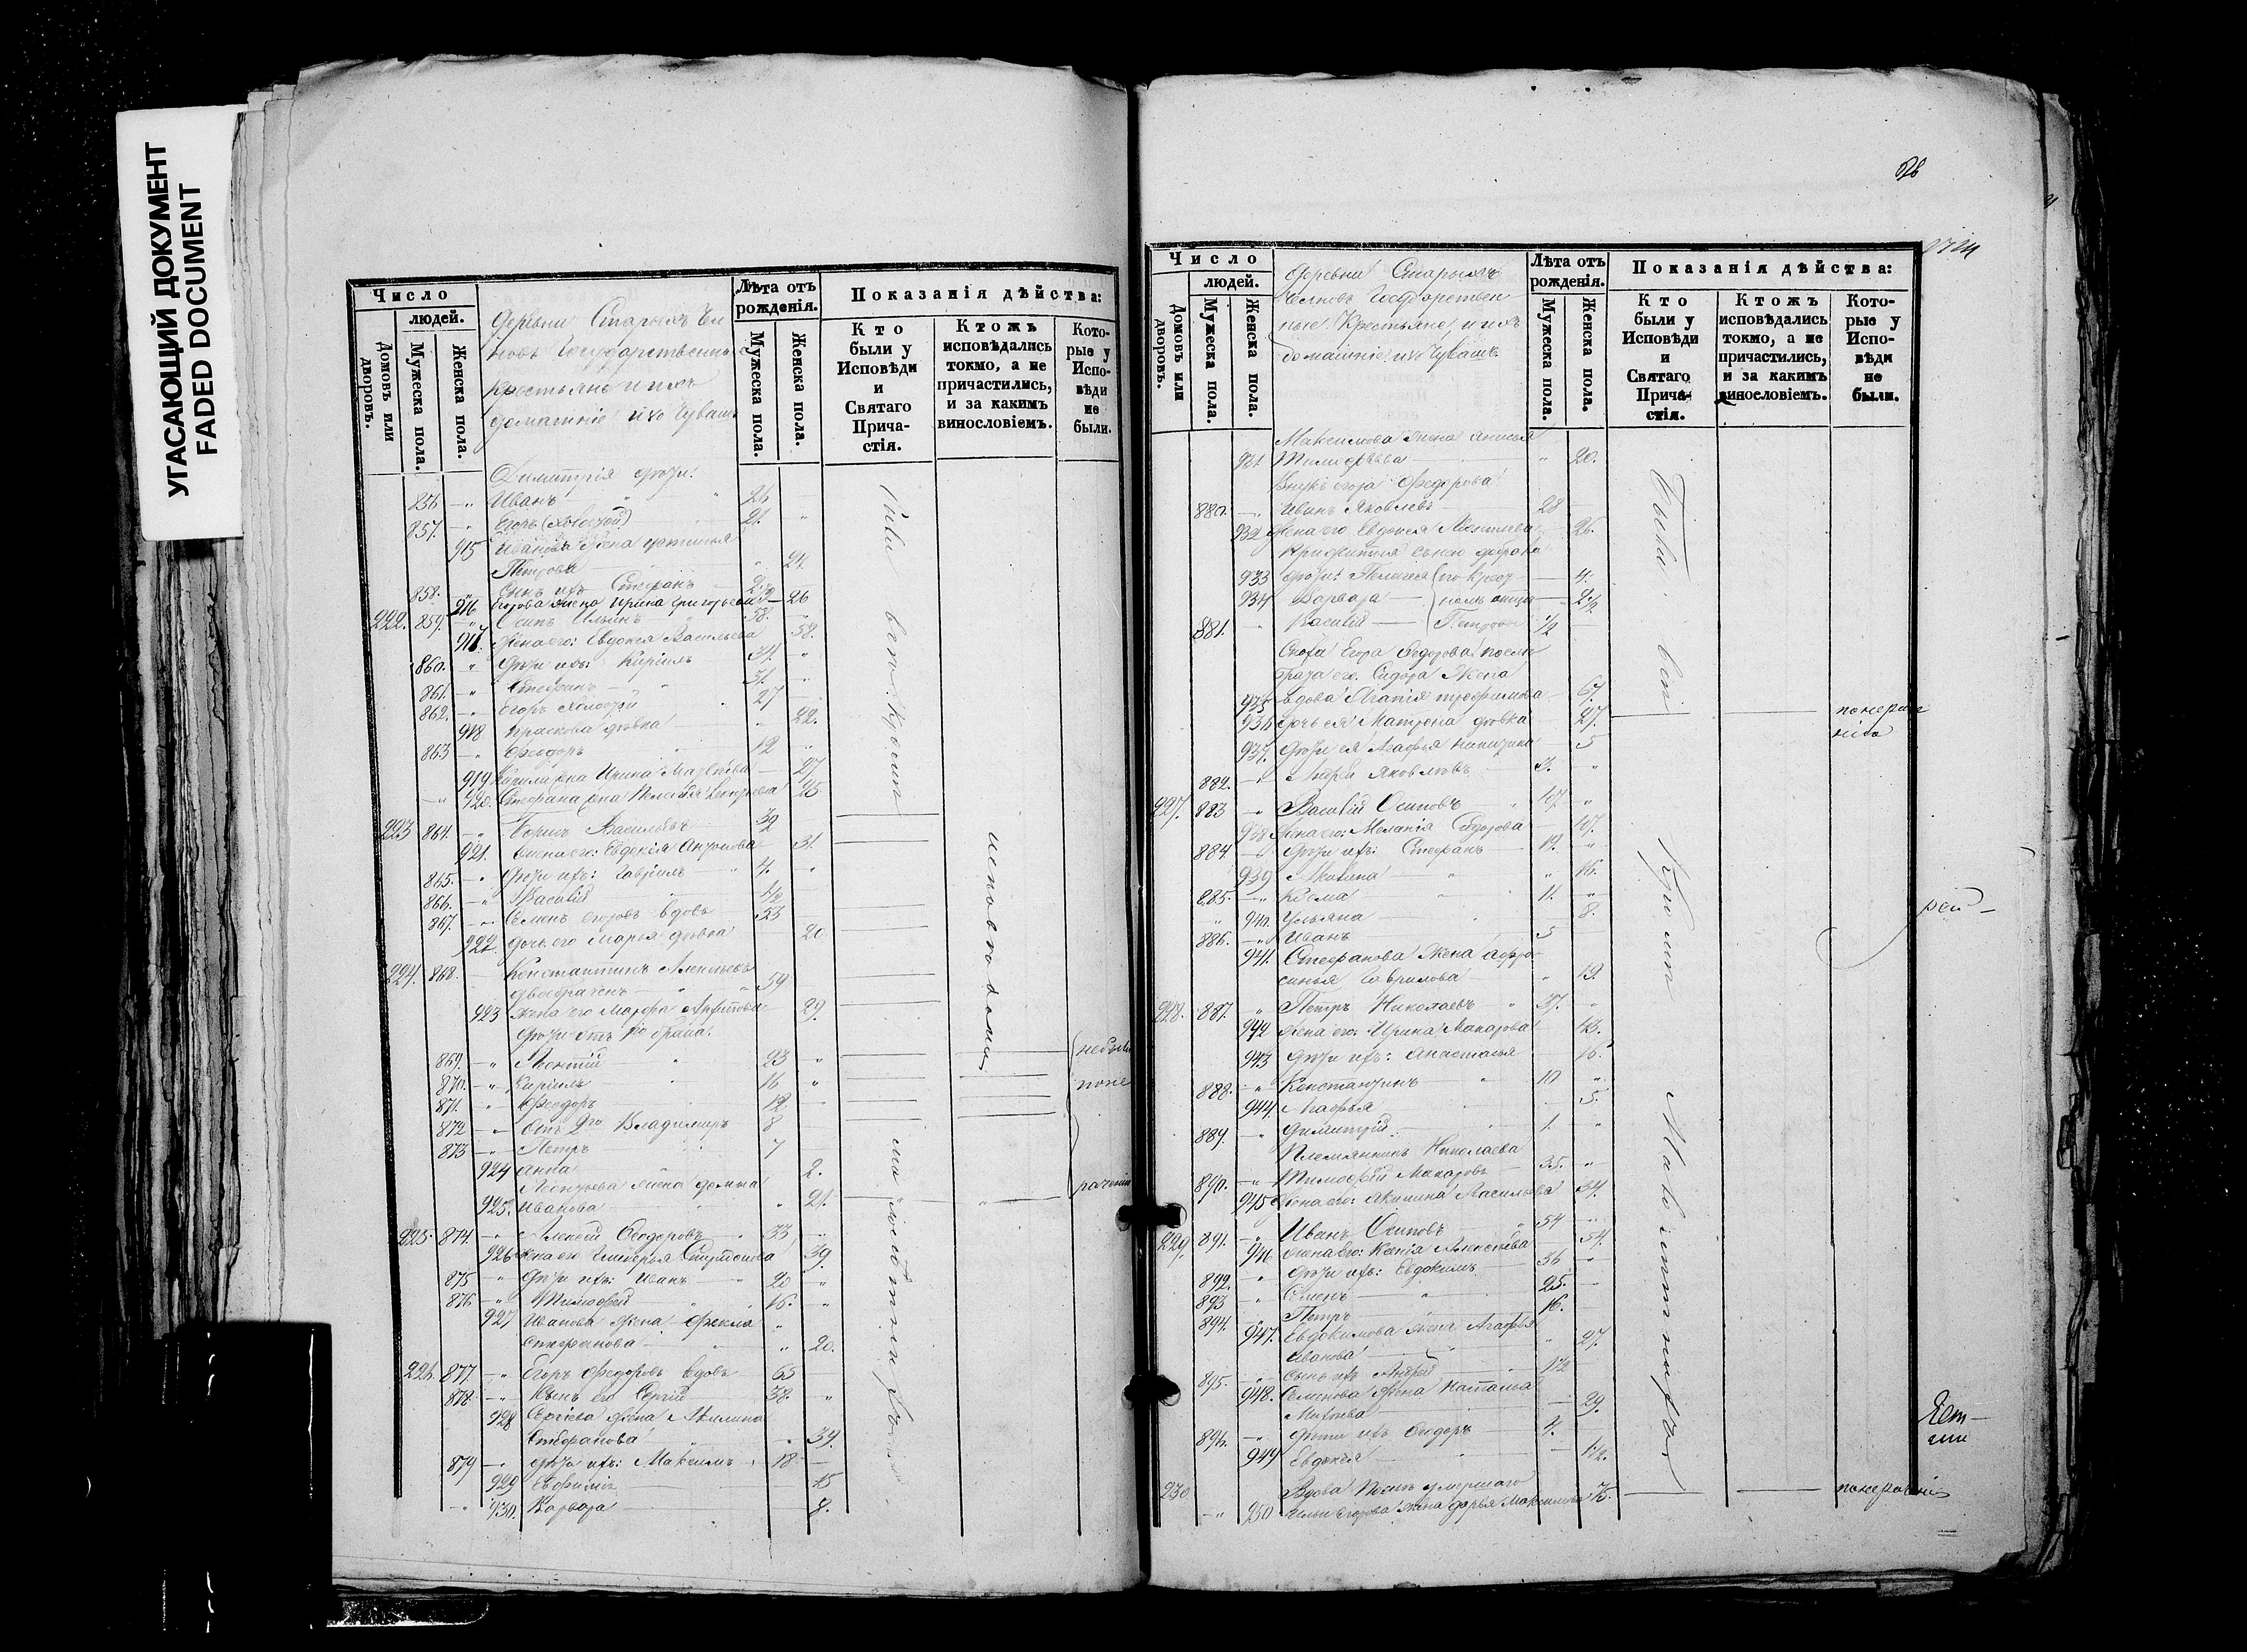 УГАСАЮЩИЙ ДОКУМЕНТ
FADED DOCUMENT
Число
людей.
Домовъ или дворовъ.
Мужеска пола.
Женска пола.
Деревни Старыхъ Чел
новъ Государственные
Крестьяне и ихъ
домашніе изъ Чувашъ
Лѣта отъ рожденія.
Мужеска пола.
Женска пола.
Показанія дѣйства:
Кто были у Исповѣди и Святаго Причастія.
Ктожъ исповѣдались токмо, а не причастились, и за какимъ винословіемъ.
Которые у Исповѣди не были.
Димитрія дѣти:
856 Иванъ 26
857. Егоръ (холостой) 21.
915 Иванова жена Устинья
Петрова 24
858. Сынъ ихъ Стефанъ
916 Егорова жена Ирина Григорьева 26
222. 859. Осипъ Ильинъ 58.
917. Жена его: Евдокія Васильева 58.
860. Дѣти ихъ: Кирилъ 34.
861. Стефанъ 31.
862. Егоръ Холостой 27
918 Праскова дѣвка 22.
863 Ѳеодоръ 12
919 Кирилы жена Ирина Матвѣева 27
920. Стефана жена Пелагія 25
223 864. Борисъ Васильевъ 32
921. Жена его: Евдокія Антонова 31.
865. Дѣти ихъ: Гавріилъ 4.
866. Василій 1/2
867. Семенъ Егоровъ вдовъ 53
922. Дочь его Марья дѣвка 20
224. 868. Константинъ Алексѣевъ
двоебраченъ 59
923 Жена его Марфа 29.
Дѣти отъ 1го брака:
869. Леонтій 23
870. Кирилъ 16
871. Ѳеодоръ 12
872 Отъ 2го Владимиръ 8
873 Петръ 7
924 Анна 2.
Леонтьева жена Домна
925. Иванова 21.
225. 874. Алексѣй Ѳеодоровъ 33
926 Жена его Гликерья 39.
875 Дѣти ихъ: Иванъ 20
876 Тимофей 16.
927 Иванова жена Фекла
Стефанова 20.
226. 877. Егоръ Ѳедоровъ вдовъ 65
878. Сынъ его Сергій 38.
928 Сергіева жена Акилина
Стефанова 39.
879 Дѣти ихъ: Максимъ 18
929 Евфимія 15
930. Варвара 8.
Были
всѣ. Кромѣ
исповѣдались
малолѣтнихъ
не были
по не
раченію
Число
людей.
Домовъ или дворовъ.
Мужеска пола.
Женска пола.
Деревни Старыхъ
Челновъ Государствен
ные Крестьяне, и ихъ
домашніе изъ Чувашъ
Лѣта отъ рожденія.
Мужеска пола.
Женска пола.
Показанія дѣйства:
Кто были у Исповѣди и Святаго Причастія.
Ктожъ исповѣдались токмо, а не причастились, и за какимъ винословіемъ.
Которые у Исповѣди не были.
Максимова жена Анисья
931 Тимофѣева 20.
Внукъ Егора Ѳедорова
880. Иванъ Яковлевъ 28
932 Жена его Евдокія Леонтьева 26.
933 дѣти: Пелагея (по крест 4.
934 Варвара номъ отцѣ 2 1/2
881. Василій Петровы 1/2
Сноха Егора Ѳедорова послѣ
брата его Сидора жена
935 вдова Агапія Трофимова 67.
936 Дочь ея Матрона дѣвка 27. по нераче
нію
937. Дѣти ея Агафья 5
882. Андрей Яковлевъ 3.
227. 883 Василій Осиповъ 47.
938 Жена его: Меланія Ѳедорова 47.
884 Дѣти ихъ: Стефанъ 19.
939 Акилина 16.
885. Козма 11.
940. Ульяна 8.
886. Иванъ 5
941. Стефанова жена Афро
синья Гаврилова 19.
228. 887. Петръ Николаевъ 37.
942 Жена его: Ирина Макарова 43.
943 Дѣти ихъ: Анастасья 16.
888. Константинъ 10
944. Агафья 5.
889. Димитрій 1.
Племянникъ Николаева
890. Тимофѣй Макаровъ 35.
945 Жена его: Акилина Васильева 34.
229. 891. Иванъ Осиповъ 54
946 Жена его: Ксенія Алексѣева 54.
892. Дѣти ихъ: Евдокимъ 36
893 Семенъ 25.
894. Петръ 16.
947. Евдокимова жена Агафья
Иванова 27.
895. Сынъ ихъ Андрей 1 1/2
948. Семенова жена Наталья
29.
896. Дѣти ихъ Ѳедоръ 4.
949 Евдокія 1 1/2.
230 Вдова послѣ умершаго
950 Ильи Егорова жена Дарья Максимова 75. по нераченію
Были всѣ
Кромѣ
Малолѣтнихъ